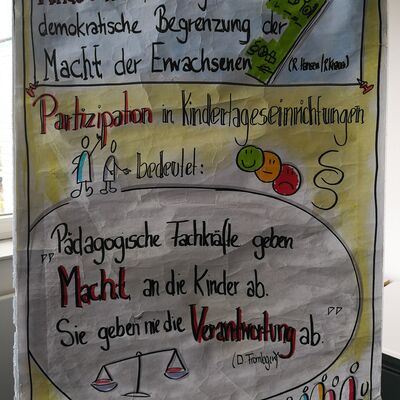 demokratische Begrenzung der
Macht der Erwachsenen
Partizipation in Kindertageseinrichtungen
bedeutet:
§
„Pädagogische Fachkräfte geben
Macht an die Kinder ab.
Sie geben nie die Verantwortung ab."